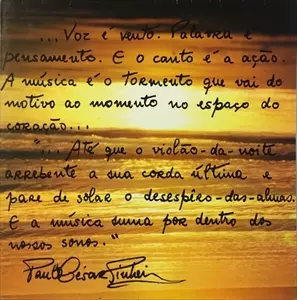 ...Voz é vento. Palavra é
pensamento. E o canto é a ação.
A música é o tormento que vai do
motivo ao momento no espaço do
coração...
"... Até que o violão-da-noite
arrebente a sua corda última e
pare de solar o desespêro-das-almas.
E a música suma por dentro dos
nossos sonos."
Paulo César Pinheiro